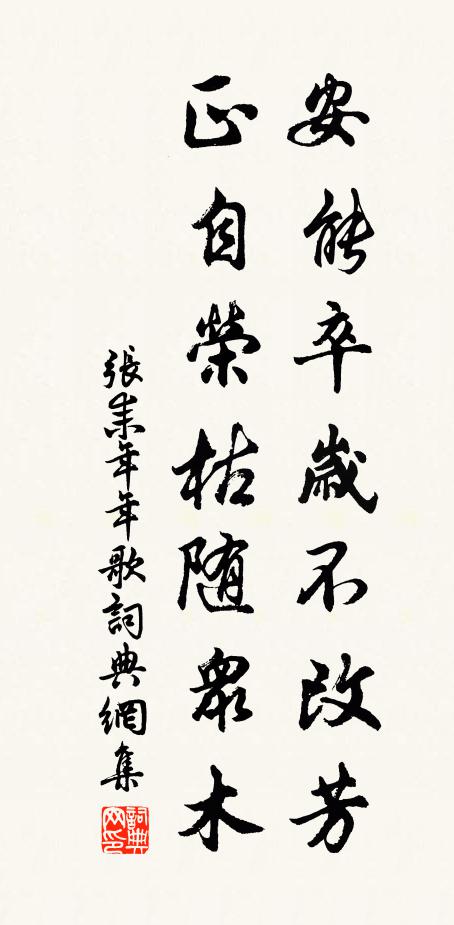 安能卒歲不改芳
正自榮枯隨眾木
張耒年年歌詞典網集
詞典網印